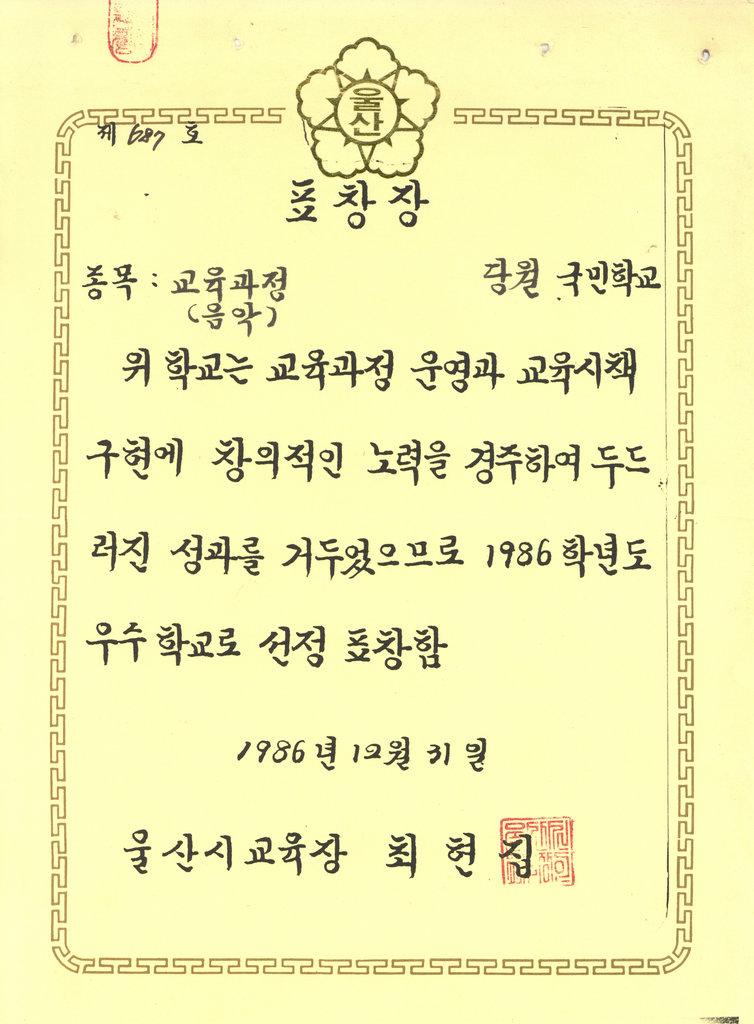 울산
제 687 호
표창장
종목 : 교육과정
(음악)
당월 국민학교
위 학교는 교육과정 운영과 교육시책
구현에 창의적인 노력을 경주하여 두드
러진 성과를 거두었으므로 1986학년도
우수학교로 선정 표창함
1986년 12월 31일
울산시교육장 최현집